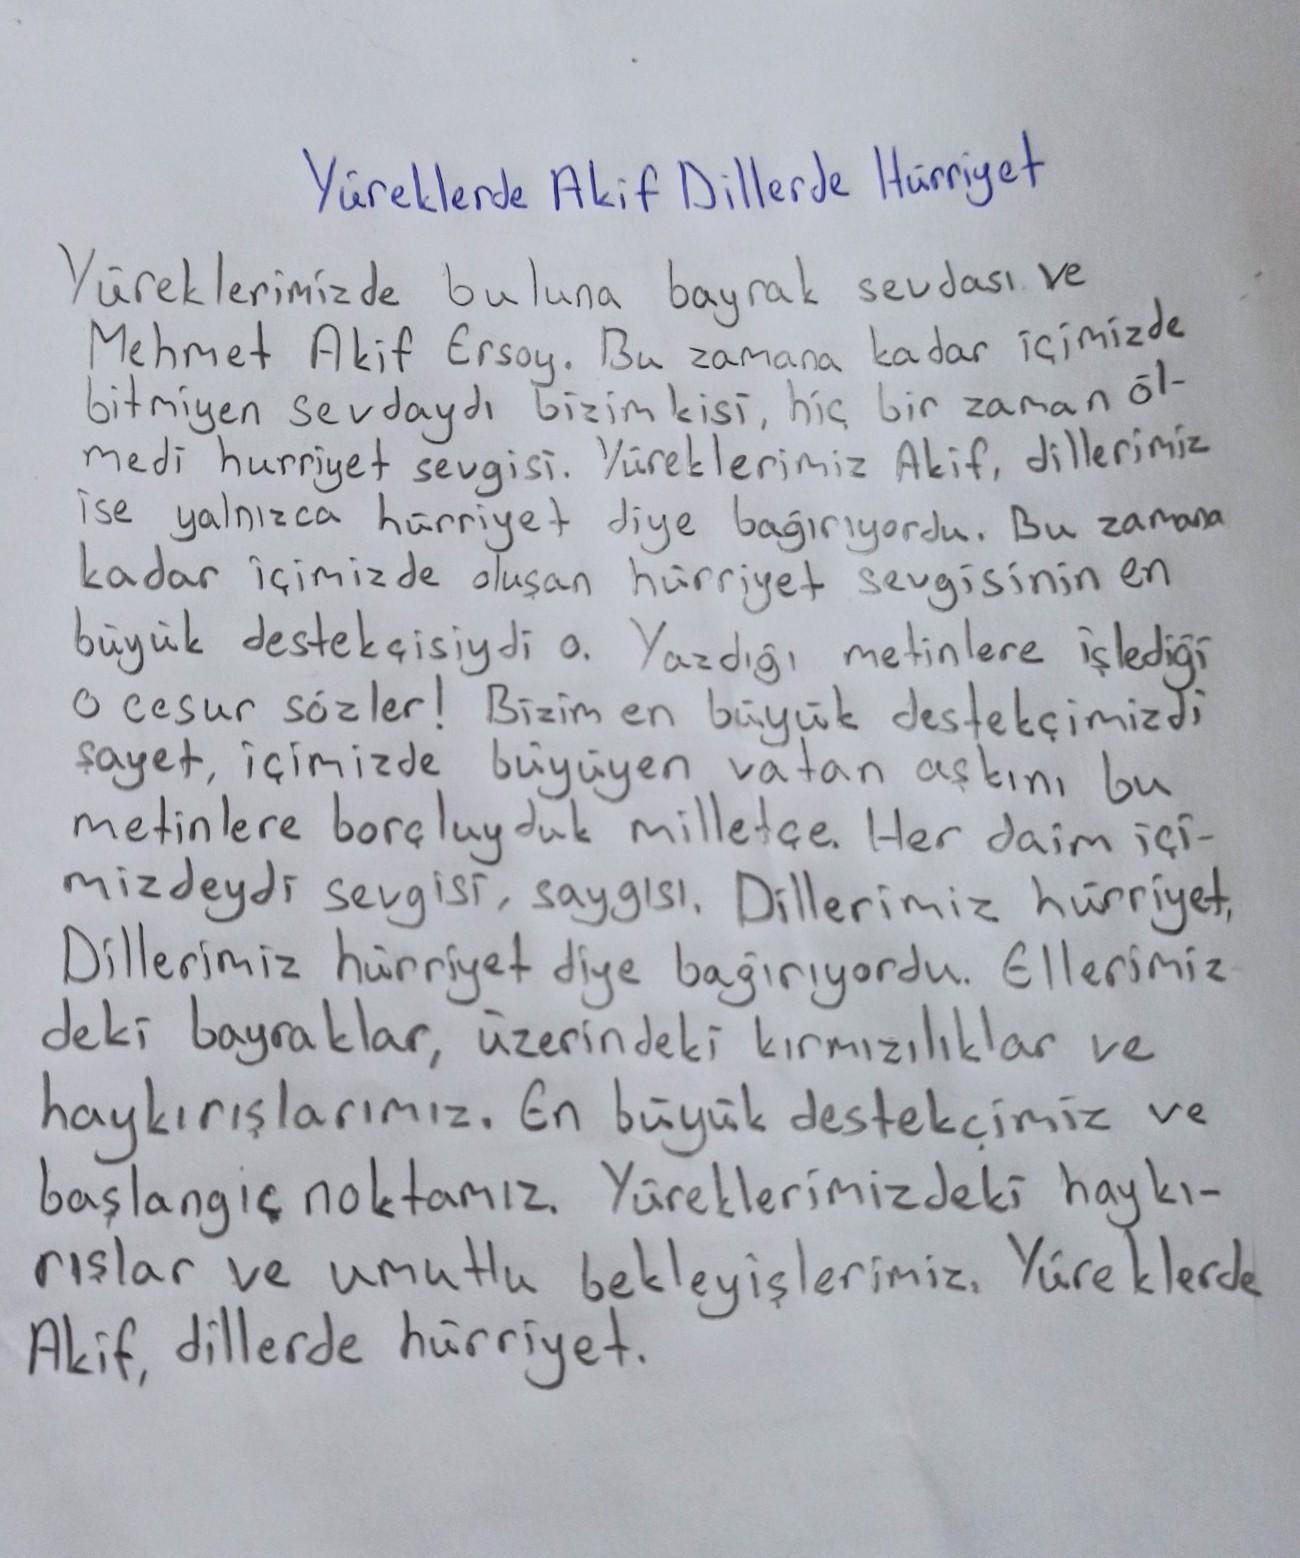 Yüreklerde Akif Dillerde Hürriyet
Yüreklerimizde buluna bayrak sevdası ve
Mehmet Akif Ersoy. Bu zamana kadar içimizde
bitmiyen sevdaydı bizim kisi, hiç bir zaman öl-
medi hurriyet sevgisi. Yüreklerimiz Akif, dillerimiz
ise yalnızca hürriyet diye bağırıyordu. Bu zamana
kadar içimizde oluşan hürriyet sevgisinin en
büyük destekçisiydi o. Yazdığı metinlere işlediği
o cesur sözler! Bizim en büyük destekçimizdi
şayet, içimizde büyüyen vatan aşkını bu
metinlere borçluyduk milletçe. Her daim içi-
mizdeydi sevgisi, saygısı. Dillerimiz hürriyet,
Dillerimiz hürriyet diye bağırıyordu. Ellerimiz
deki bayraklar, üzerindeki kırmızılıklar ve
haykırışlarımız. En büyük destekçimiz ve
başlangıç noktamız. Yüreklerimizdeki haykı-
rışlar ve umutlu bekleyişlerimiz. Yüreklerde
Akif, dillerde hürriyet.